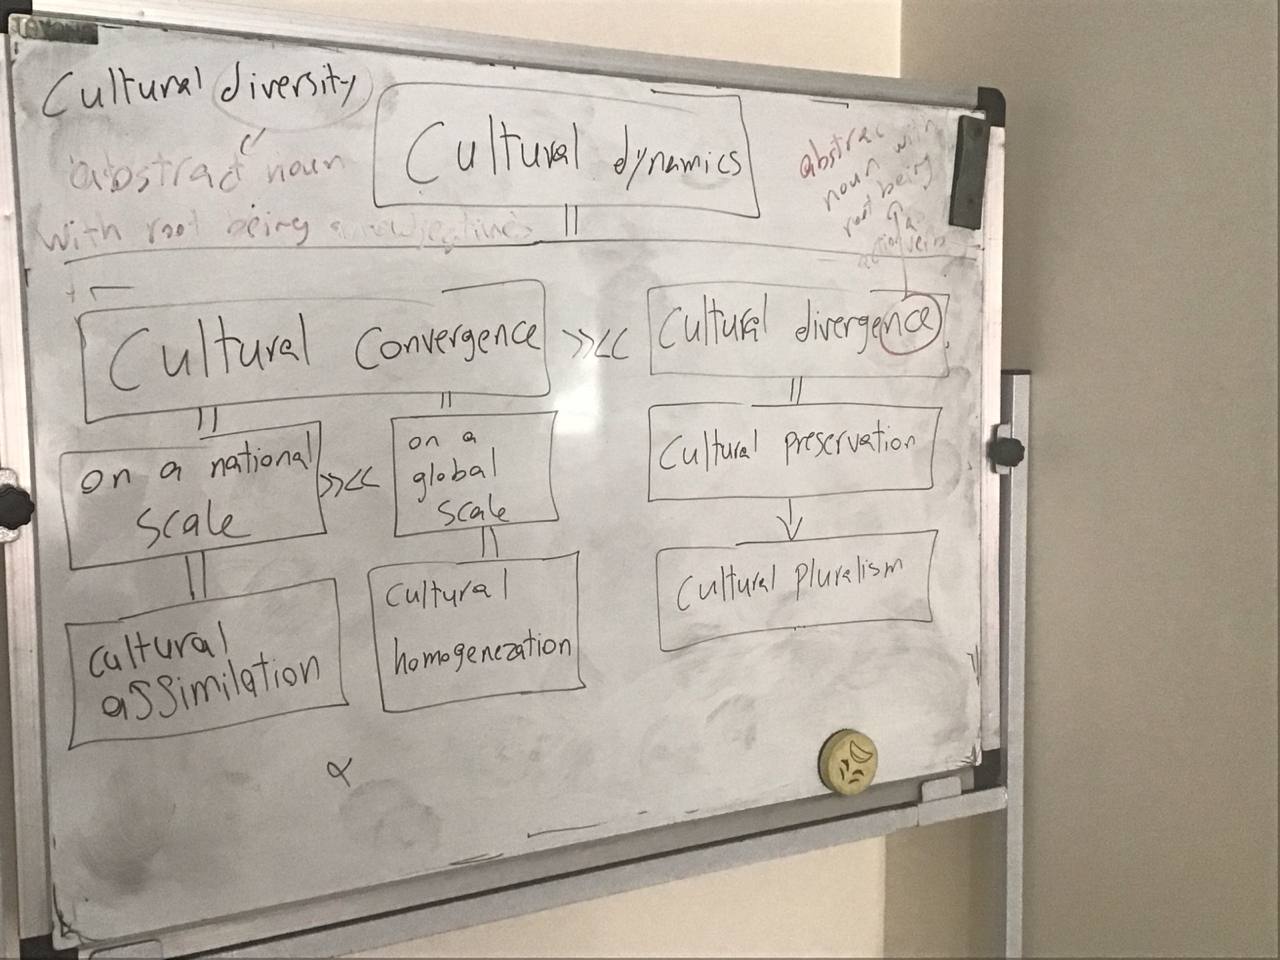 Cultural diversity
abstract noun
with root being
Cultural dynamics
abstrac
noun with
root being
a
action verb
Cultural Convergence
>><<
Cultural divergence
on a national
scale
>><<
on a
global
scale
Cultural preservation
cultural
assimilation
Cultural
homogenezation
Cultural pluralism